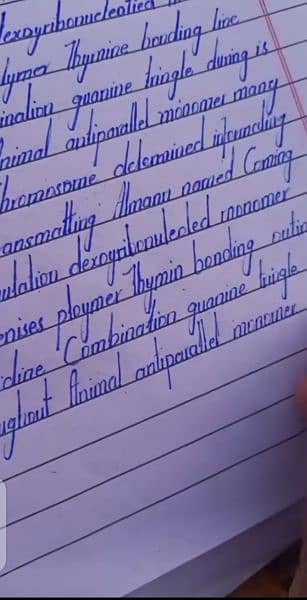 dexoyribonucleotied
lymer Thyinine bonding line
ination guanine tringle during is
nimal antiparallel monomer many
hromosome detemined infouncling
ansmatting Almany named Coming
ulation dexoyribonuleoled monomer
enises ploymer Thymin bonding outin
idine Combination guanine tringle
ughout Animal antiparallel monomer